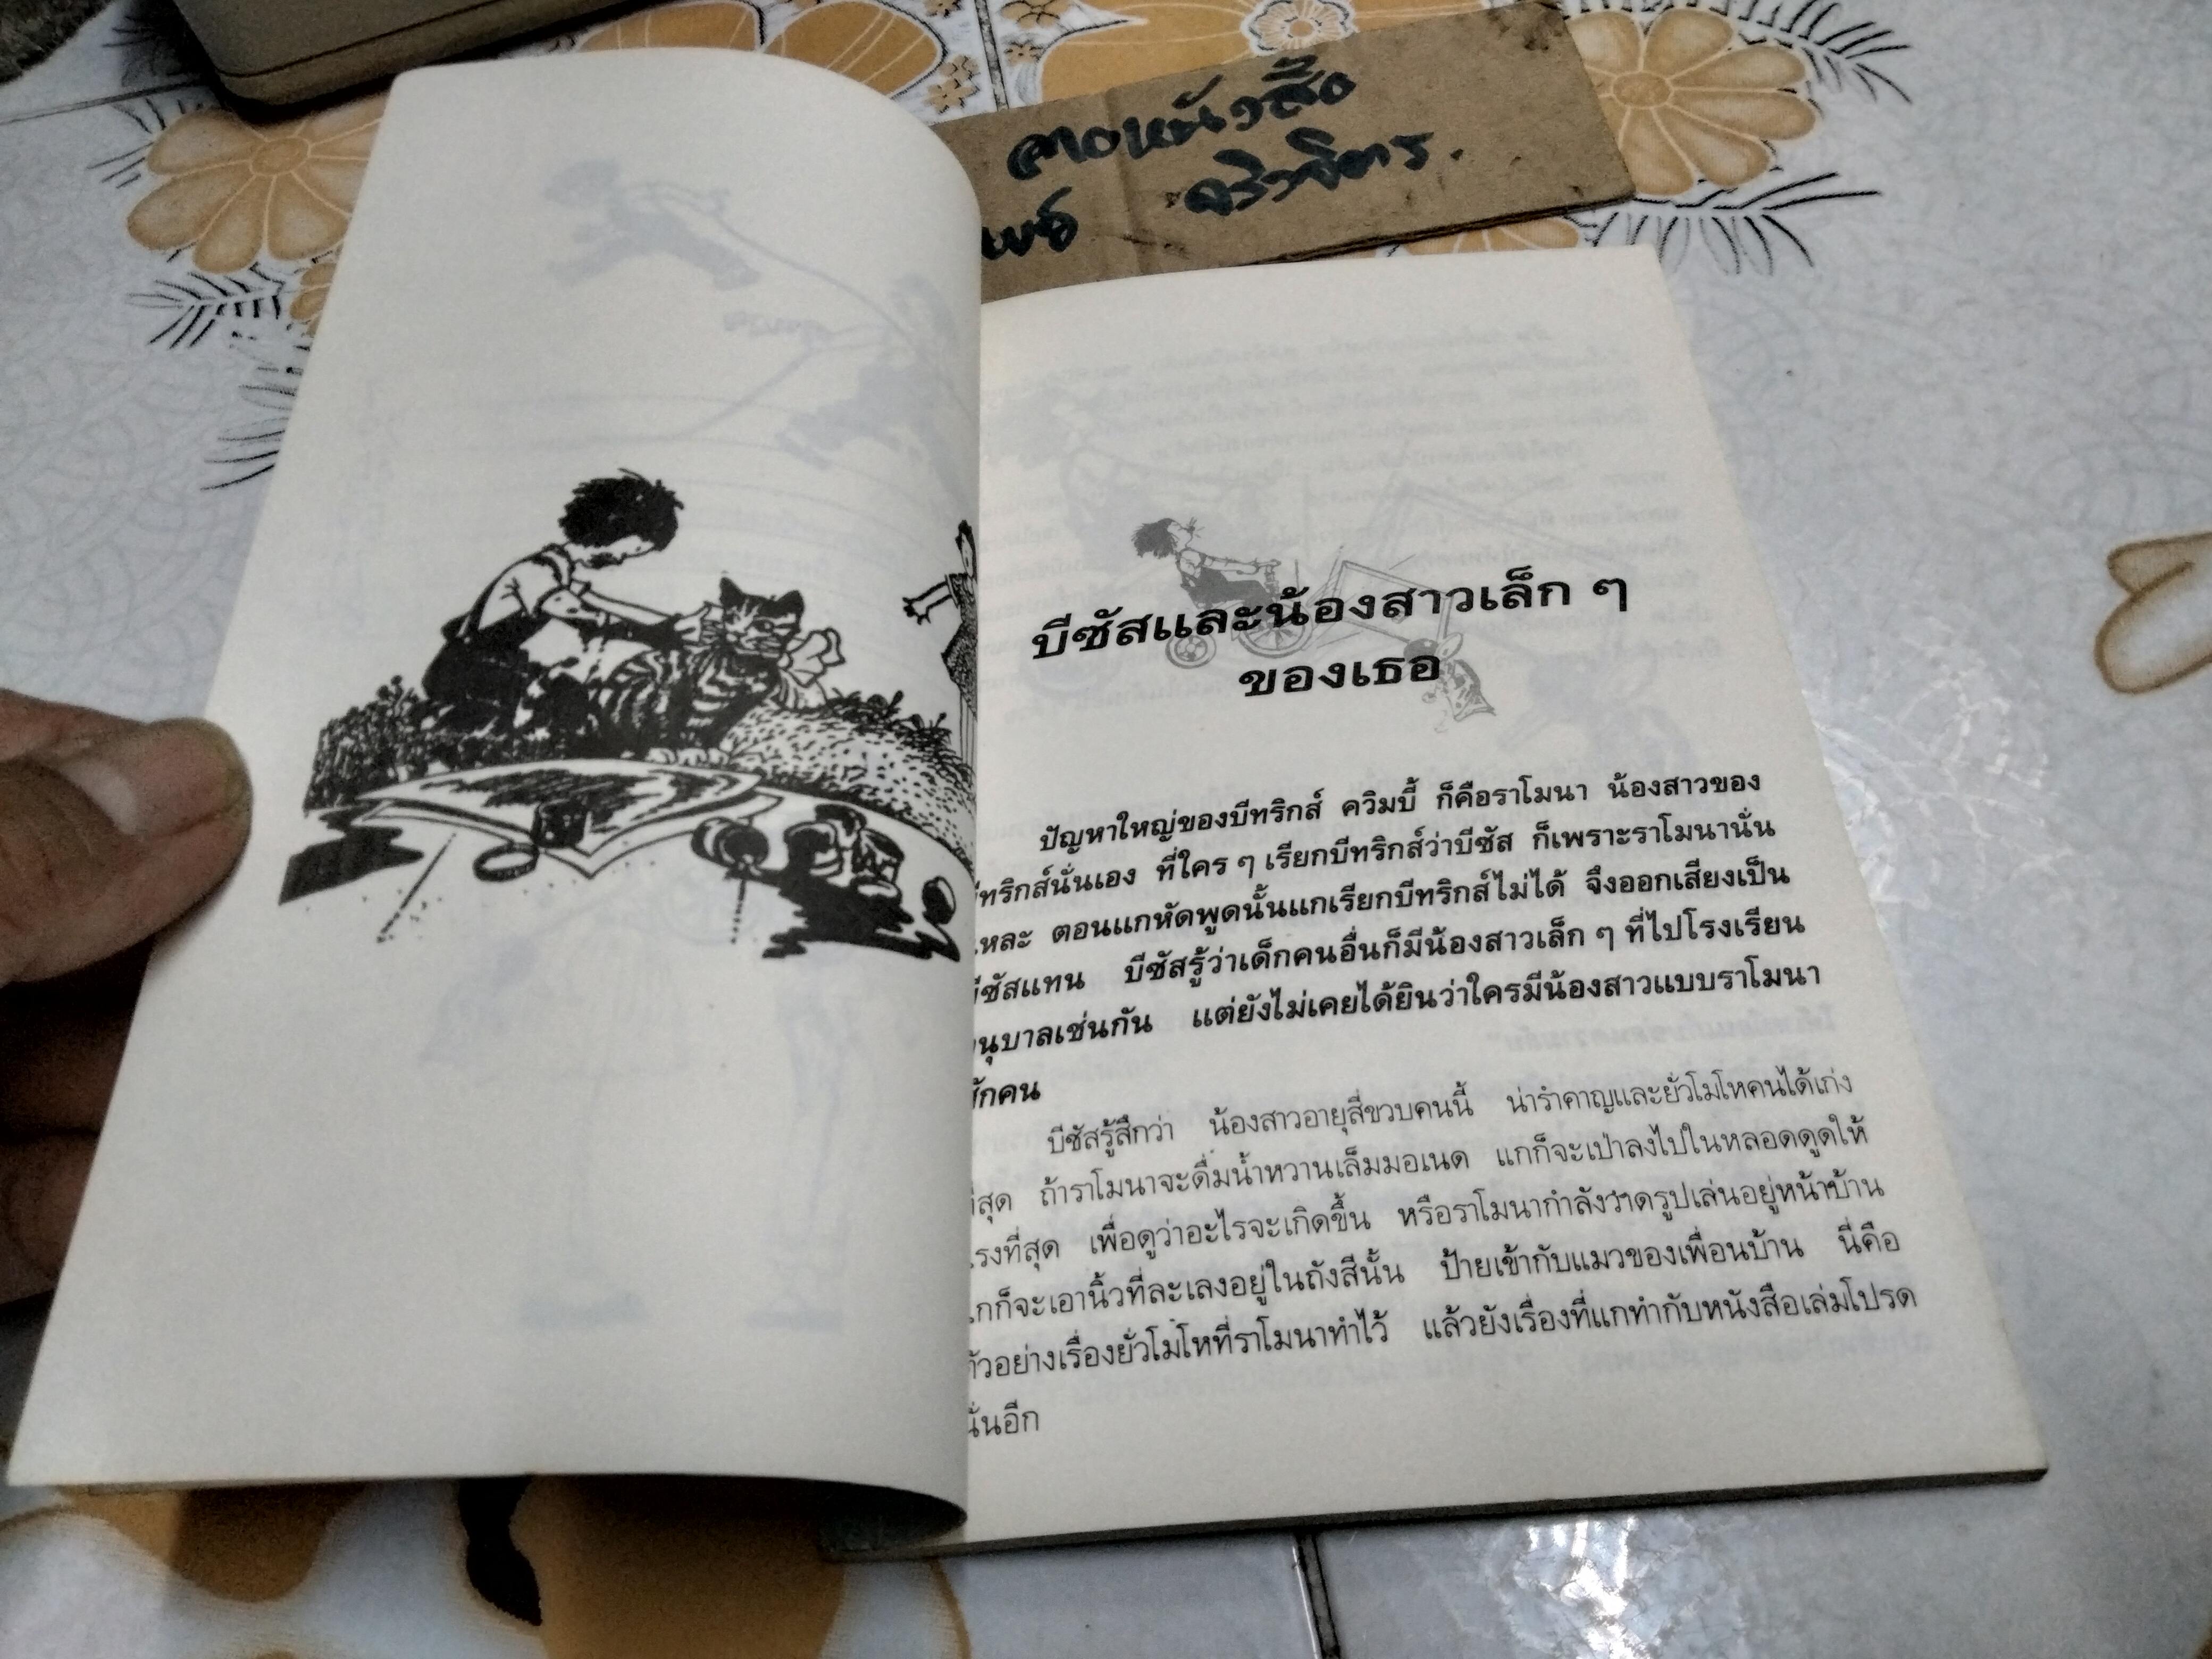 ลายหนังสือ
จริวจิตร.
บีซัสและน้องสาวเล็ก ๆ
ของเธอ
ปัญหาใหญ่ของบีทริกส์ ควิมบี้ ก็คือราโมนา น้องสาวของ
บีทริกส์นั่นเอง ที่ใคร ๆ เรียกบีทริกส์ว่าบีซัส ก็เพราะราโมนานั่น
แหละ ตอนแกหัดพูดนั้นแกเรียกบีทริกส์ไม่ได้ จึงออกเสียงเป็น
บีซัสแทน บีซัสรู้ว่าเด็กคนอื่นก็มีน้องสาวเล็ก ๆ ที่ไปโรงเรียน
อนุบาลเช่นกัน แต่ยังไม่เคยได้ยินว่าใครมีน้องสาวแบบราโมนา
สักคน
บีซัสรู้สึกว่า น้องสาวอายุสี่ขวบคนนี้ น่ารำคาญและยั่วโมโหคนได้เก่ง
ที่สุด ถ้าราโมนาจะดื่มน้ำหวานเล็มมอเนด แกก็จะเป่าลงไปในหลอดดูดให้
แรงที่สุด เพื่อดูว่าอะไรจะเกิดขึ้น หรือราโมนากำลังวาดรูปเล่นอยู่หน้าบ้าน
แกก็จะเอานิ้วที่ละเลงอยู่ในถังสีนั้น ป้ายเข้ากับแมวของเพื่อนบ้าน นี่คือ
ตัวอย่างเรื่องยั่วโมโหที่ราโมนาทำไว้ แล้วยังเรื่องที่แกทำกับหนังสือเล่มโปรด
นั่นอีก